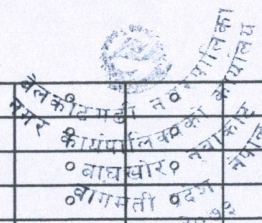 बेलकोटगढी नगरपालिका
नगर कार्यपालिकाको कार्यालय
बाघखोर, नुवाकोट
बागमती प्रदेश, नेपाल